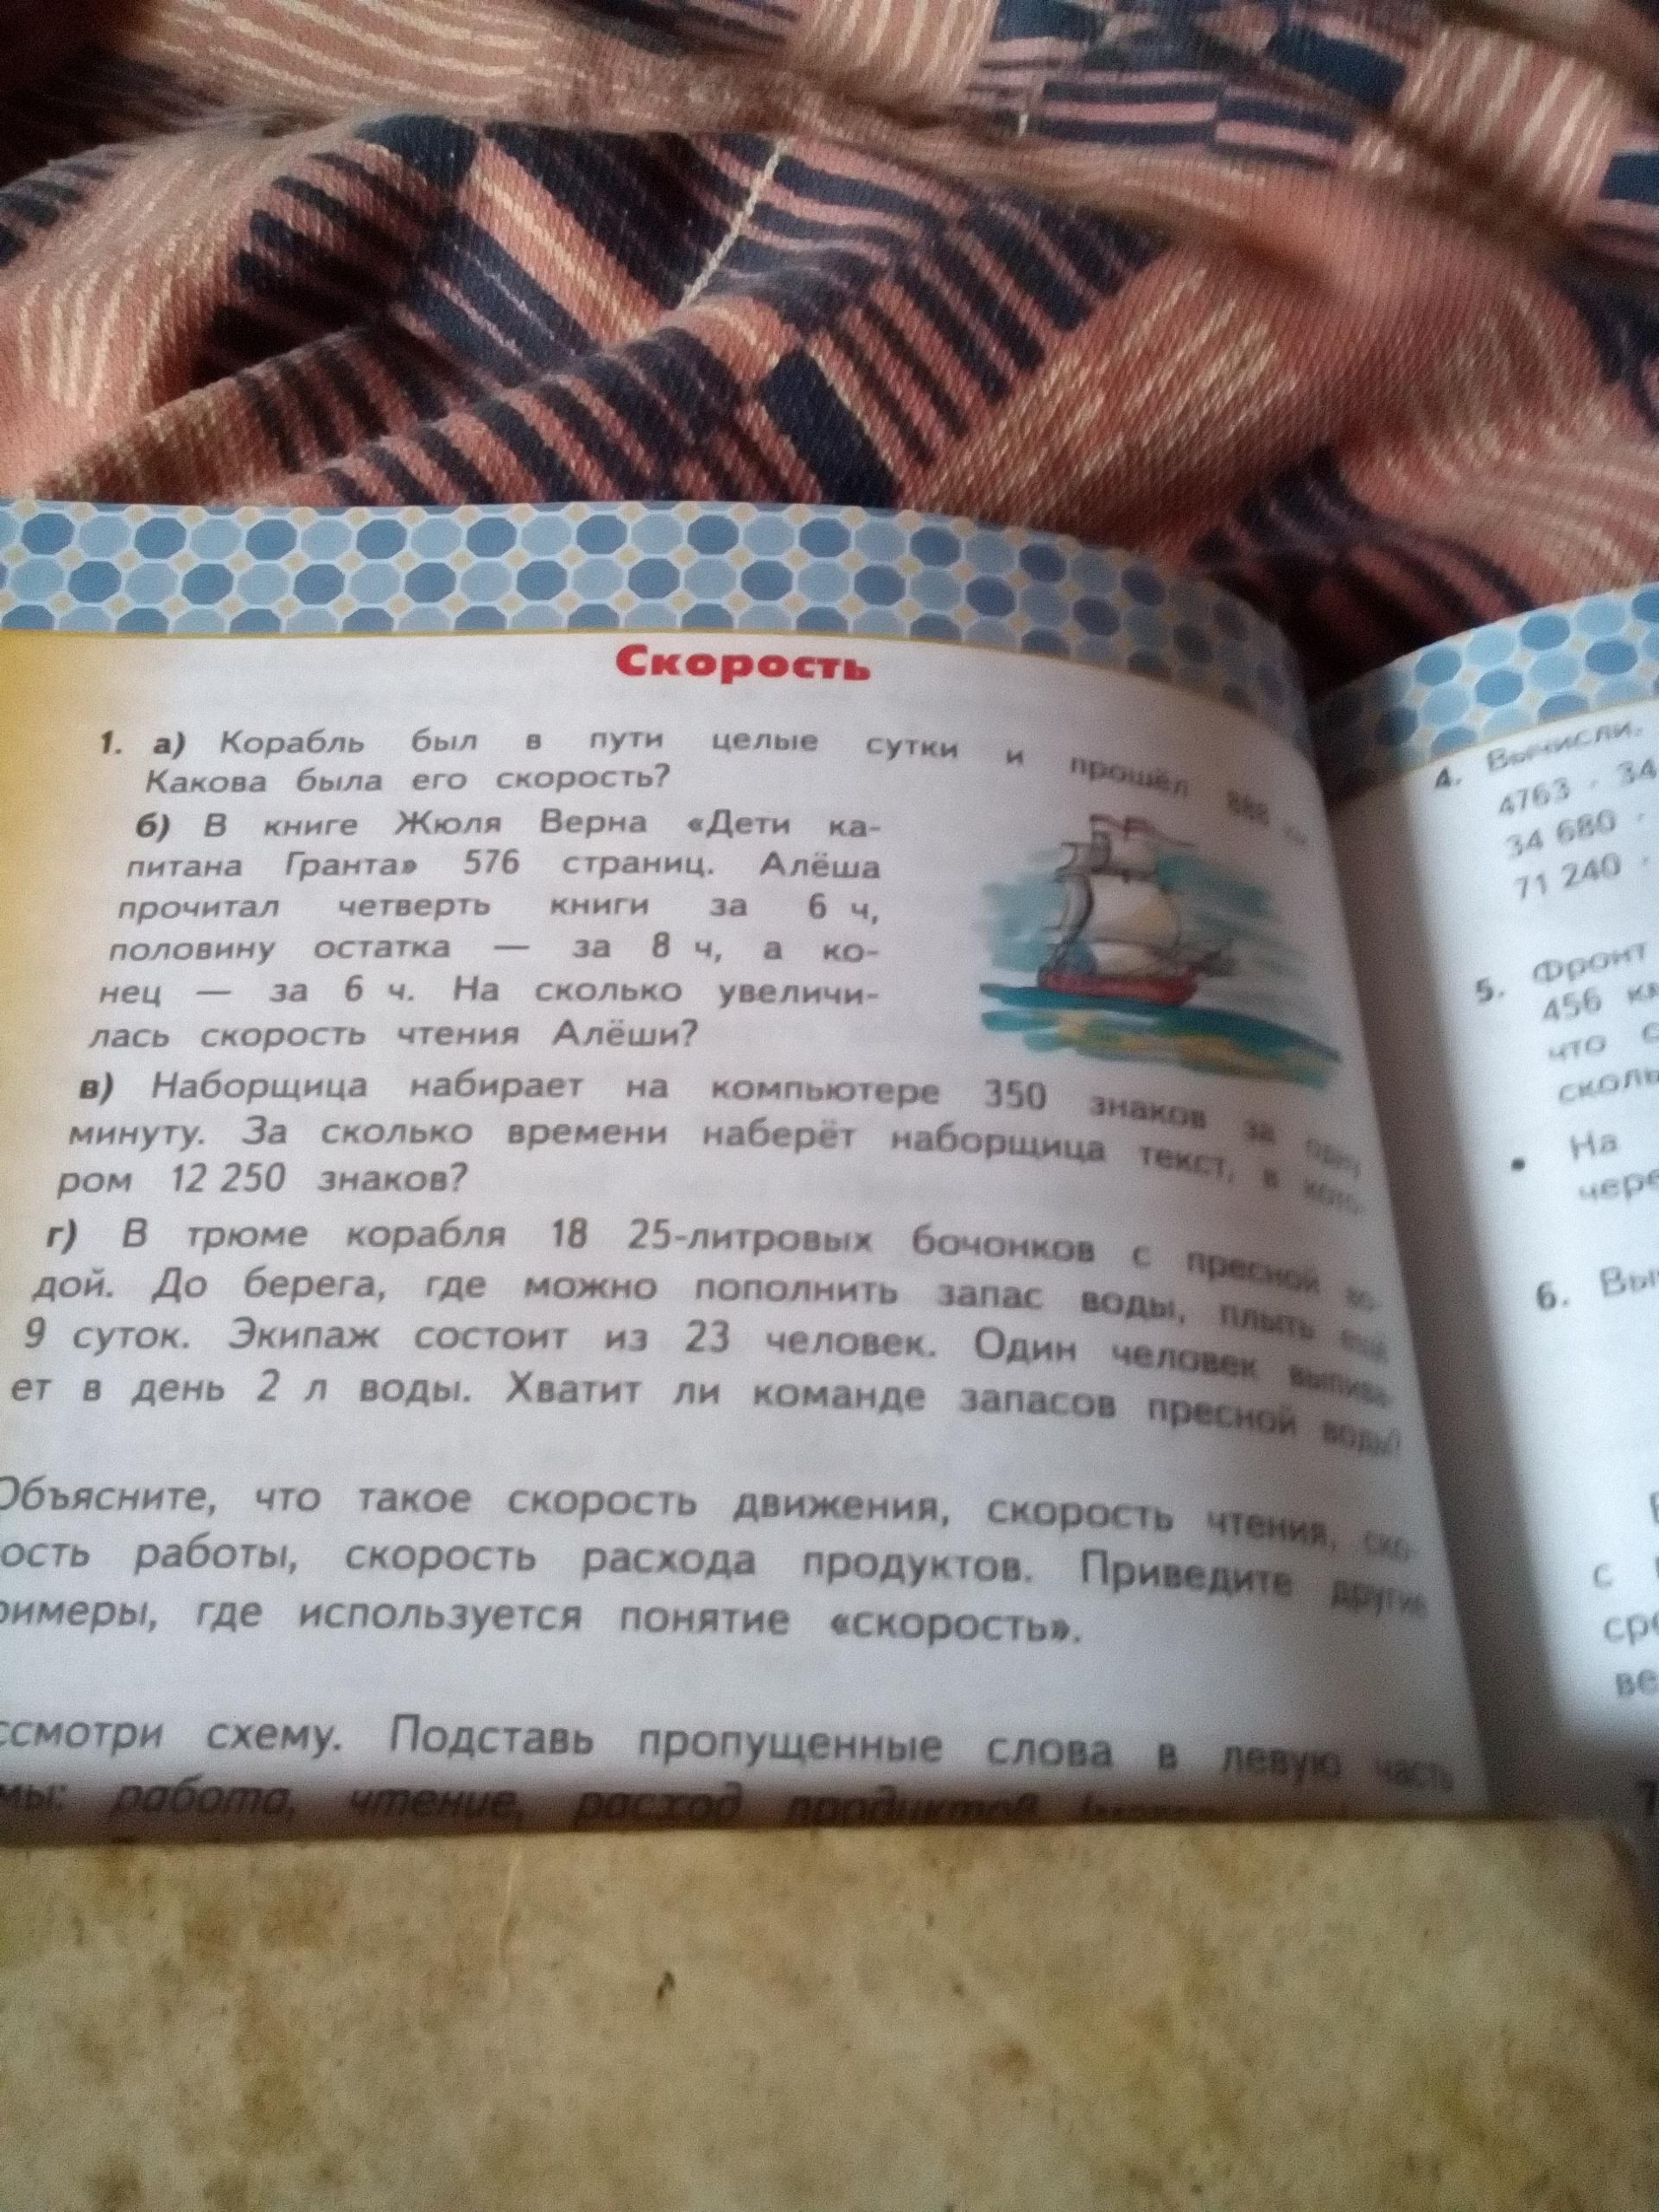 Скорость
1. а) Корабль был в пути целые сутки и прошёл 888 км.
Какова была его скорость?
б) В книге Жюля Верна «Дети ка-
питана Гранта» 576 страниц. Алёша
прочитал четверть книги за 6 ч,
половину остатка — за 8 ч, а ко-
нец — за 6 ч. На сколько увеличи-
лась скорость чтения Алёши?
в) Наборщица набирает на компьютере 350 знаков за одну
минуту. За сколько времени наберёт наборщица текст, в кото-
ром 12 250 знаков?
г) В трюме корабля 18 25-литровых бочонков с пресной во-
дой. До берега, где можно пополнить запас воды, плыть ещё
9 суток. Экипаж состоит из 23 человек. Один человек выпива-
ет в день 2 л воды. Хватит ли команде запасов пресной воды?
Объясните, что такое скорость движения, скорость чтения, ско-
ость работы, скорость расхода продуктов. Приведите другие
римеры, где используется понятие «скорость».
ссмотри схему. Подставь пропущенные слова в левую часть
мы: работа, чтение, расход продуктов
4. Вычисли.
4763 · 34
34 680 ·
71 240 ·
5. Фронт
456 км
что
сколь
• На
чере
6. Вы
с
сре
ве